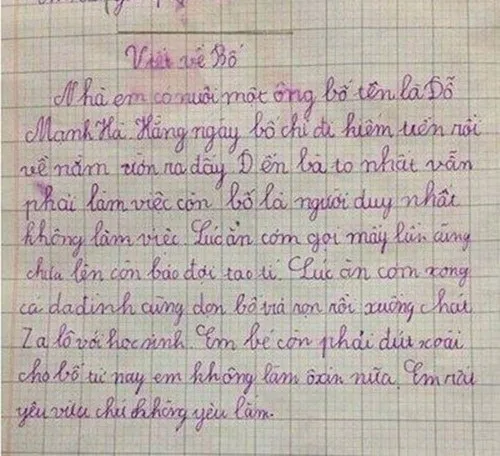 Viết về Bố
Nhà em có nuôi một ông bố tên là Đỗ
Mạnh Hà. Hằng ngày bố chỉ đi kiếm tiền rồi
về nằm ườn ra đấy. Đến bà to nhất vẫn
phải làm việc còn bố là người duy nhất
không làm việc. Lúc ăn cơm gọi mấy lần cũng
chưa lên còn bảo đợi tao tí. Lúc ăn cơm xong
cả da đình cùng dọn bố vả rọn rồi xuống chát
Za lô với học sinh. Em bé còn phải dút xoài
cho bố từ nay em không làm ôxin nữa. Em rất
yêu vừa chứ không yêu lắm.